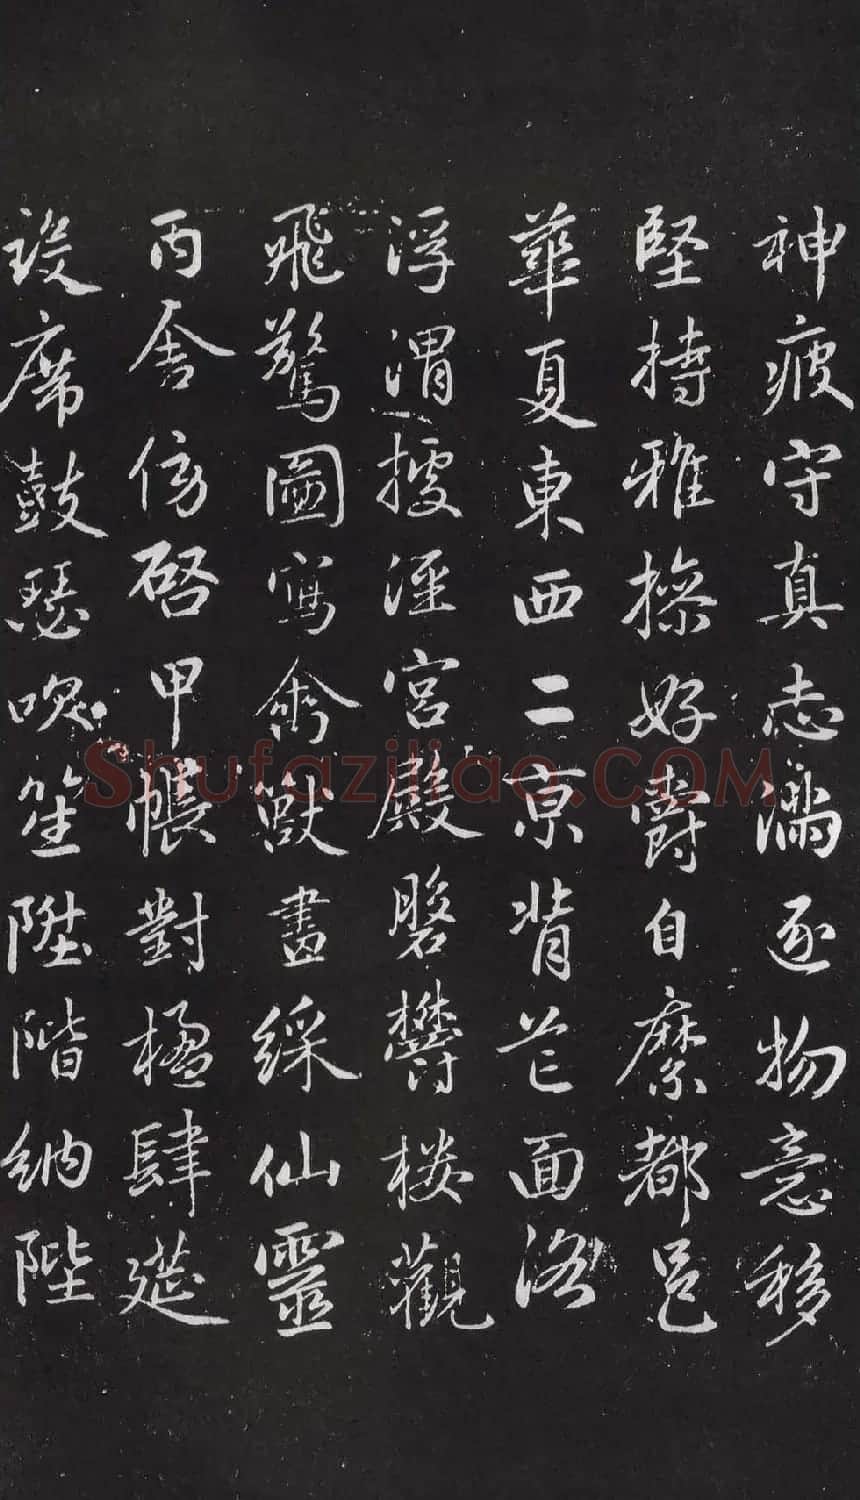 神疲守真志滿逐物意移
堅持雅操好爵自縻都邑
華夏東西二京背芒面洛
浮渭據涇宮殿磐鬱樓觀
飛驚圖寫禽獸畫綵仙靈
丙舍傍啓甲帳對楹肆筵
設席鼓瑟吹笙陞階納陛
Shufaziliao.COM